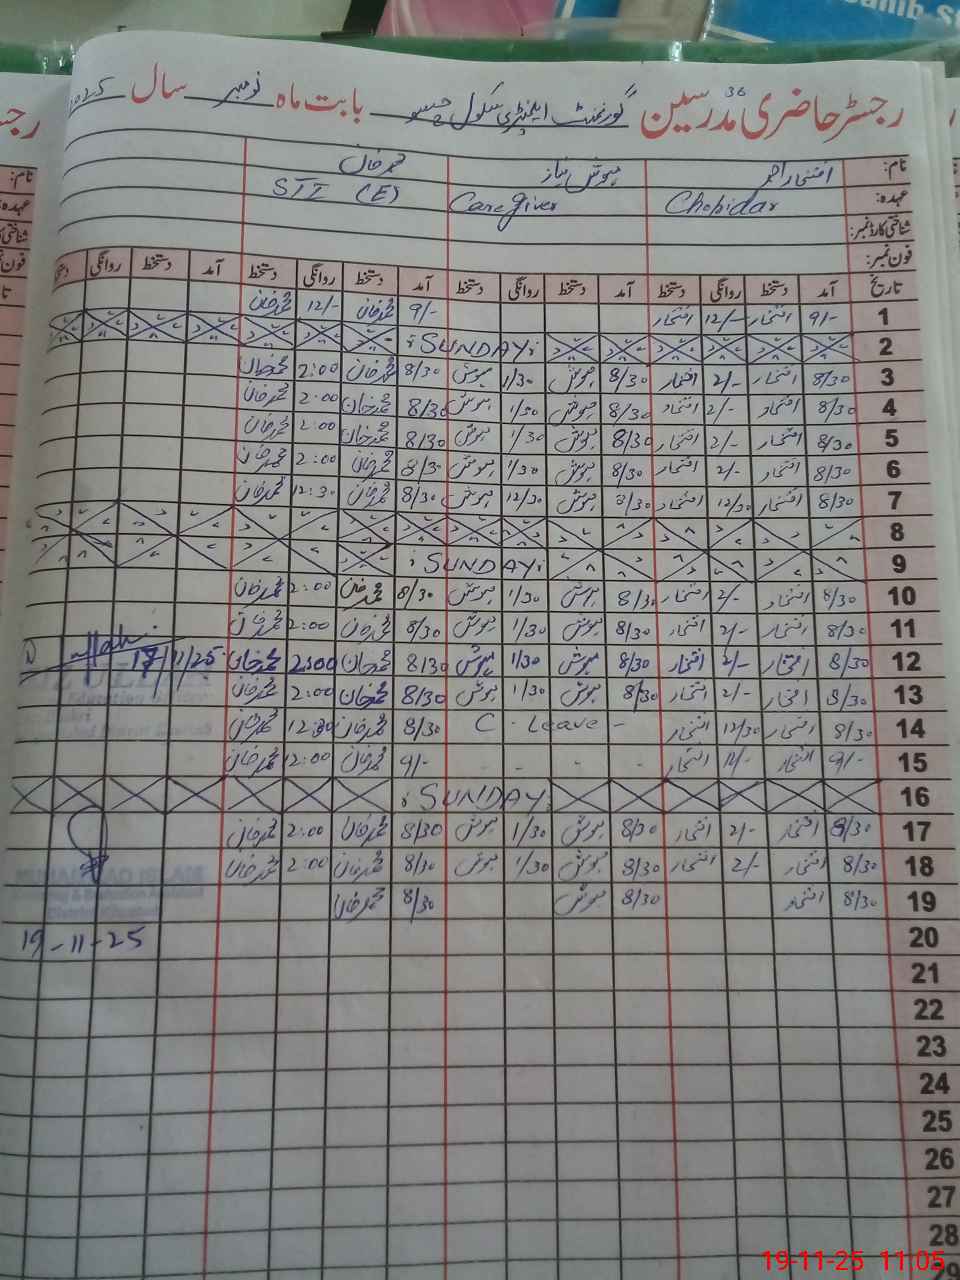 رجسٹر حاضری مدرسین گورنمنٹ ایلیمنٹری سکول بابت ماہ نومبر سال 2025
36
نام: افتخار احمد مہوش نیاز محمد خان
عہدہ: Chokidar Caregiver STI (E)
شناختی کارڈ نمبر:
فون نمبر:
تاریخ آمد دستخط روانگی دستخط آمد دستخط روانگی دستخط آمد دستخط روانگی دستخط آمد دستخط روانگی دستخط
1 9/- افتخار 12/- افتخار 9/- محمد خان 12/- محمد خان
2 SUNDAY
3 8/30 افتخار 2/- افتخار 8/30 مہوش 1/30 مہوش 8/30 محمد خان 2:00 محمد خان
4 8/30 افتخار 2/- افتخار 8/30 مہوش 1/30 مہوش 8/30 محمد خان 2:00 محمد خان
5 8/30 افتخار 2/- افتخار 8/30 مہوش 1/30 مہوش 8/30 محمد خان 2:00 محمد خان
6 8/30 افتخار 2/- افتخار 8/30 مہوش 1/30 مہوش 8/30 محمد خان 2:00 محمد خان
7 8/30 افتخار 12/30 افتخار 8/30 مہوش 12/30 مہوش 8/30 محمد خان 12:30 محمد خان
8
9 SUNDAY
10 8/30 افتخار 2/- افتخار 8/30 مہوش 1/30 مہوش 8/30 محمد خان 2:00 محمد خان
11 8/30 افتخار 2/- افتخار 8/30 مہوش 1/30 مہوش 8/30 محمد خان 2:00 محمد خان
12 8/30 افتخار 2/- افتخار 8/30 مہوش 1/30 مہوش 8/30 محمد خان 2:00 محمد خان 17/11/25
13 8/30 افتخار 2/- افتخار 8/30 مہوش 1/30 مہوش 8/30 محمد خان 2:00 محمد خان
14 8/30 افتخار 12/30 افتخار C. Leave - 8/30 محمد خان 12:30 محمد خان
15 9/- افتخار 12/- افتخار - - - - 9/- محمد خان 12:00 محمد خان
16 SUNDAY
17 8/30 افتخار 2/- افتخار 8/30 مہوش 1/30 مہوش 8/30 محمد خان 2:00 محمد خان
18 8/30 افتخار 2/- افتخار 8/30 مہوش 1/30 مہوش 8/30 محمد خان 2:00 محمد خان
19 8/30 افتخار 8/30 مہوش 8/30 محمد خان
20 19-11-25
21
22
23
24
25
26
27
28
29
19-11-25 11:05